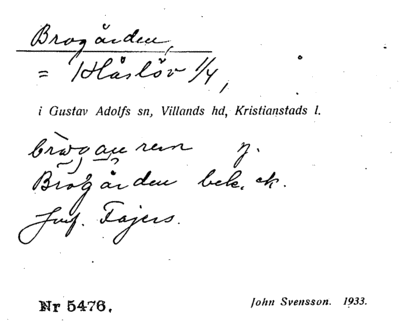 Brogården,
= Håslöv 1/4,
i Gustav Adolfs sn, Villands hd, Kristianstads l.
y.
Brogården bek. ok.
Jmf. Fajers.
Nr 5476.
John Svensson. 1933.